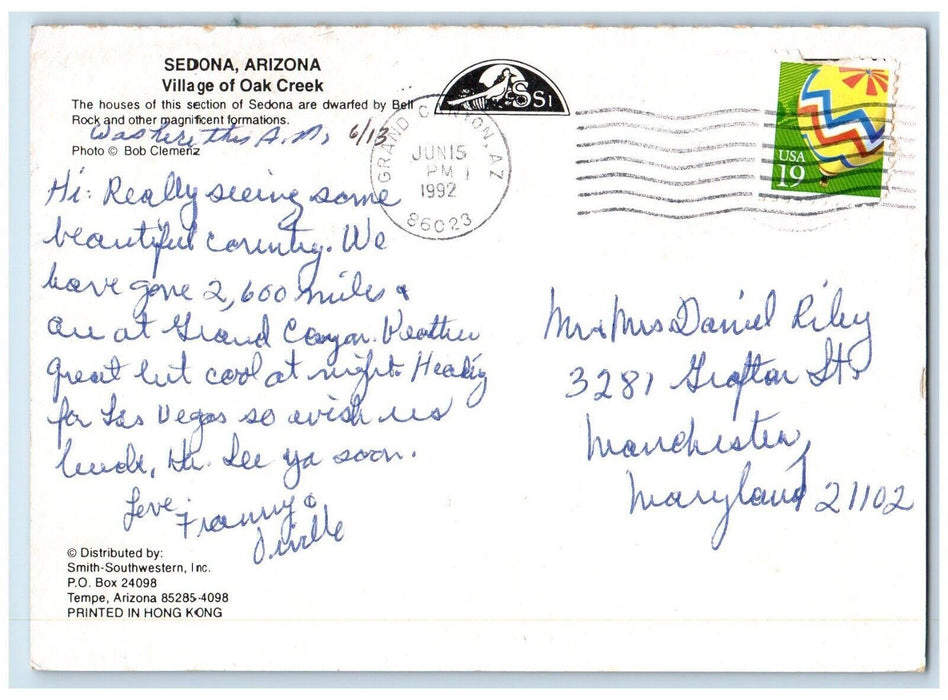 SEDONA, ARIZONA
Village of Oak Creek
The houses of this section of Sedona are dwarfed by Bell
Rock and other magnificent formations.
Was here this A.M. 6/13
Photo © Bob Clemenz
SSI
GRAND CANYON, AZ
JUN 15
PM
1992
86023
USA
19
Hi: Really seeing some
beautiful country. We
have gone 2,600 miles &
are at Grand Canyon. Weather
great but cool at night. Heading
for Las Vegas so wish us
luck, Ha. See ya soon.
Love,
Franny &
Mr & Mrs Daniel Riley
3281 Grafton St.
Manchester,
Maryland 21102
© Distributed by:
Smith-Southwestern, Inc.
P.O. Box 24098
Tempe, Arizona 85285-4098
PRINTED IN HONG KONG